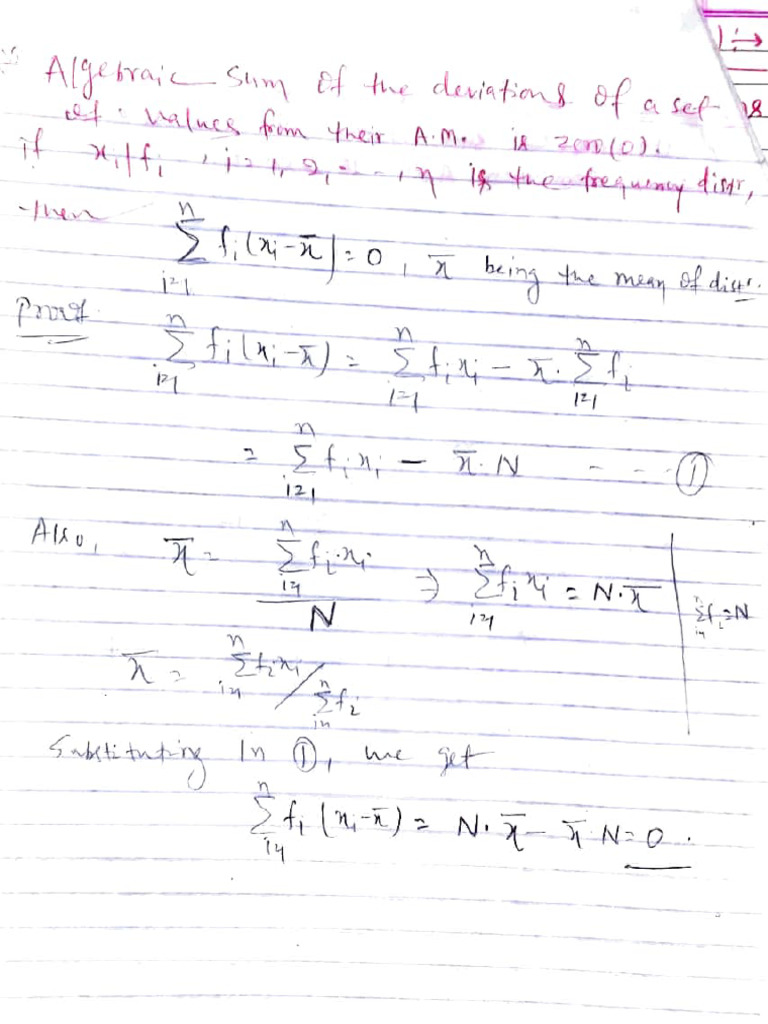 Algebraic Sum of the deviations of a set
of values from their A.M. is zero(0).
if xi|fi , i=1, 2, ..., n is the frequency distr,
then n∑i=1 fi(xi-x̄)=0, x̄ being the mean of distr.
Proof n∑i=1 fi(xi-x̄) = n∑i=1 fi xi - x̄. n∑i=1 fi
= n∑i=1 fi xi - x̄. N - - - ①
Also, x̄ = n∑i=1 fi.xi / N ⇒ n∑i=1 fi xi = N.x̄ | n∑i=1 fi=N
x̄ = n∑i=1 fi xi / n∑i=1 fi
Substituting In ①, we get
n∑i=1 fi (xi-x̄) = N. x̄ - x̄ N=0.